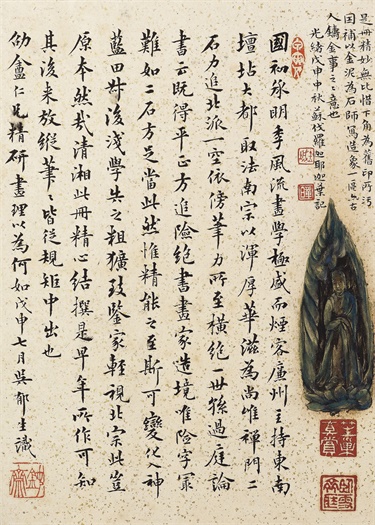 是冊精妙無比惜下角為舊印所汚
因補以金泥為石師寫造象一區亦古
人鑄金事之之意也
光緒戊申中秋蘇伐羅迦耶迦葉記
國初承明季風流畫學極盛而煙客廉州主持東南
壇坫大都取法南宗以渾厚華滋為尚唯禪門二
石力追北派一空依傍筆力所至橫絕一世孫過庭論
書云既得平正方追險絕書畫家造境唯險字冣
難如二石方足當此然惟精能之至斯可變化入神
藍田對後淺學失之粗獷致鑒家輕視北宗此豈
原本然哉清湘此冊精心結撰是早年所作可知
其後來放縱筆筆皆從規矩中出也
幼盦仁兄精研畫理以為何如戊申七月吳郁生識